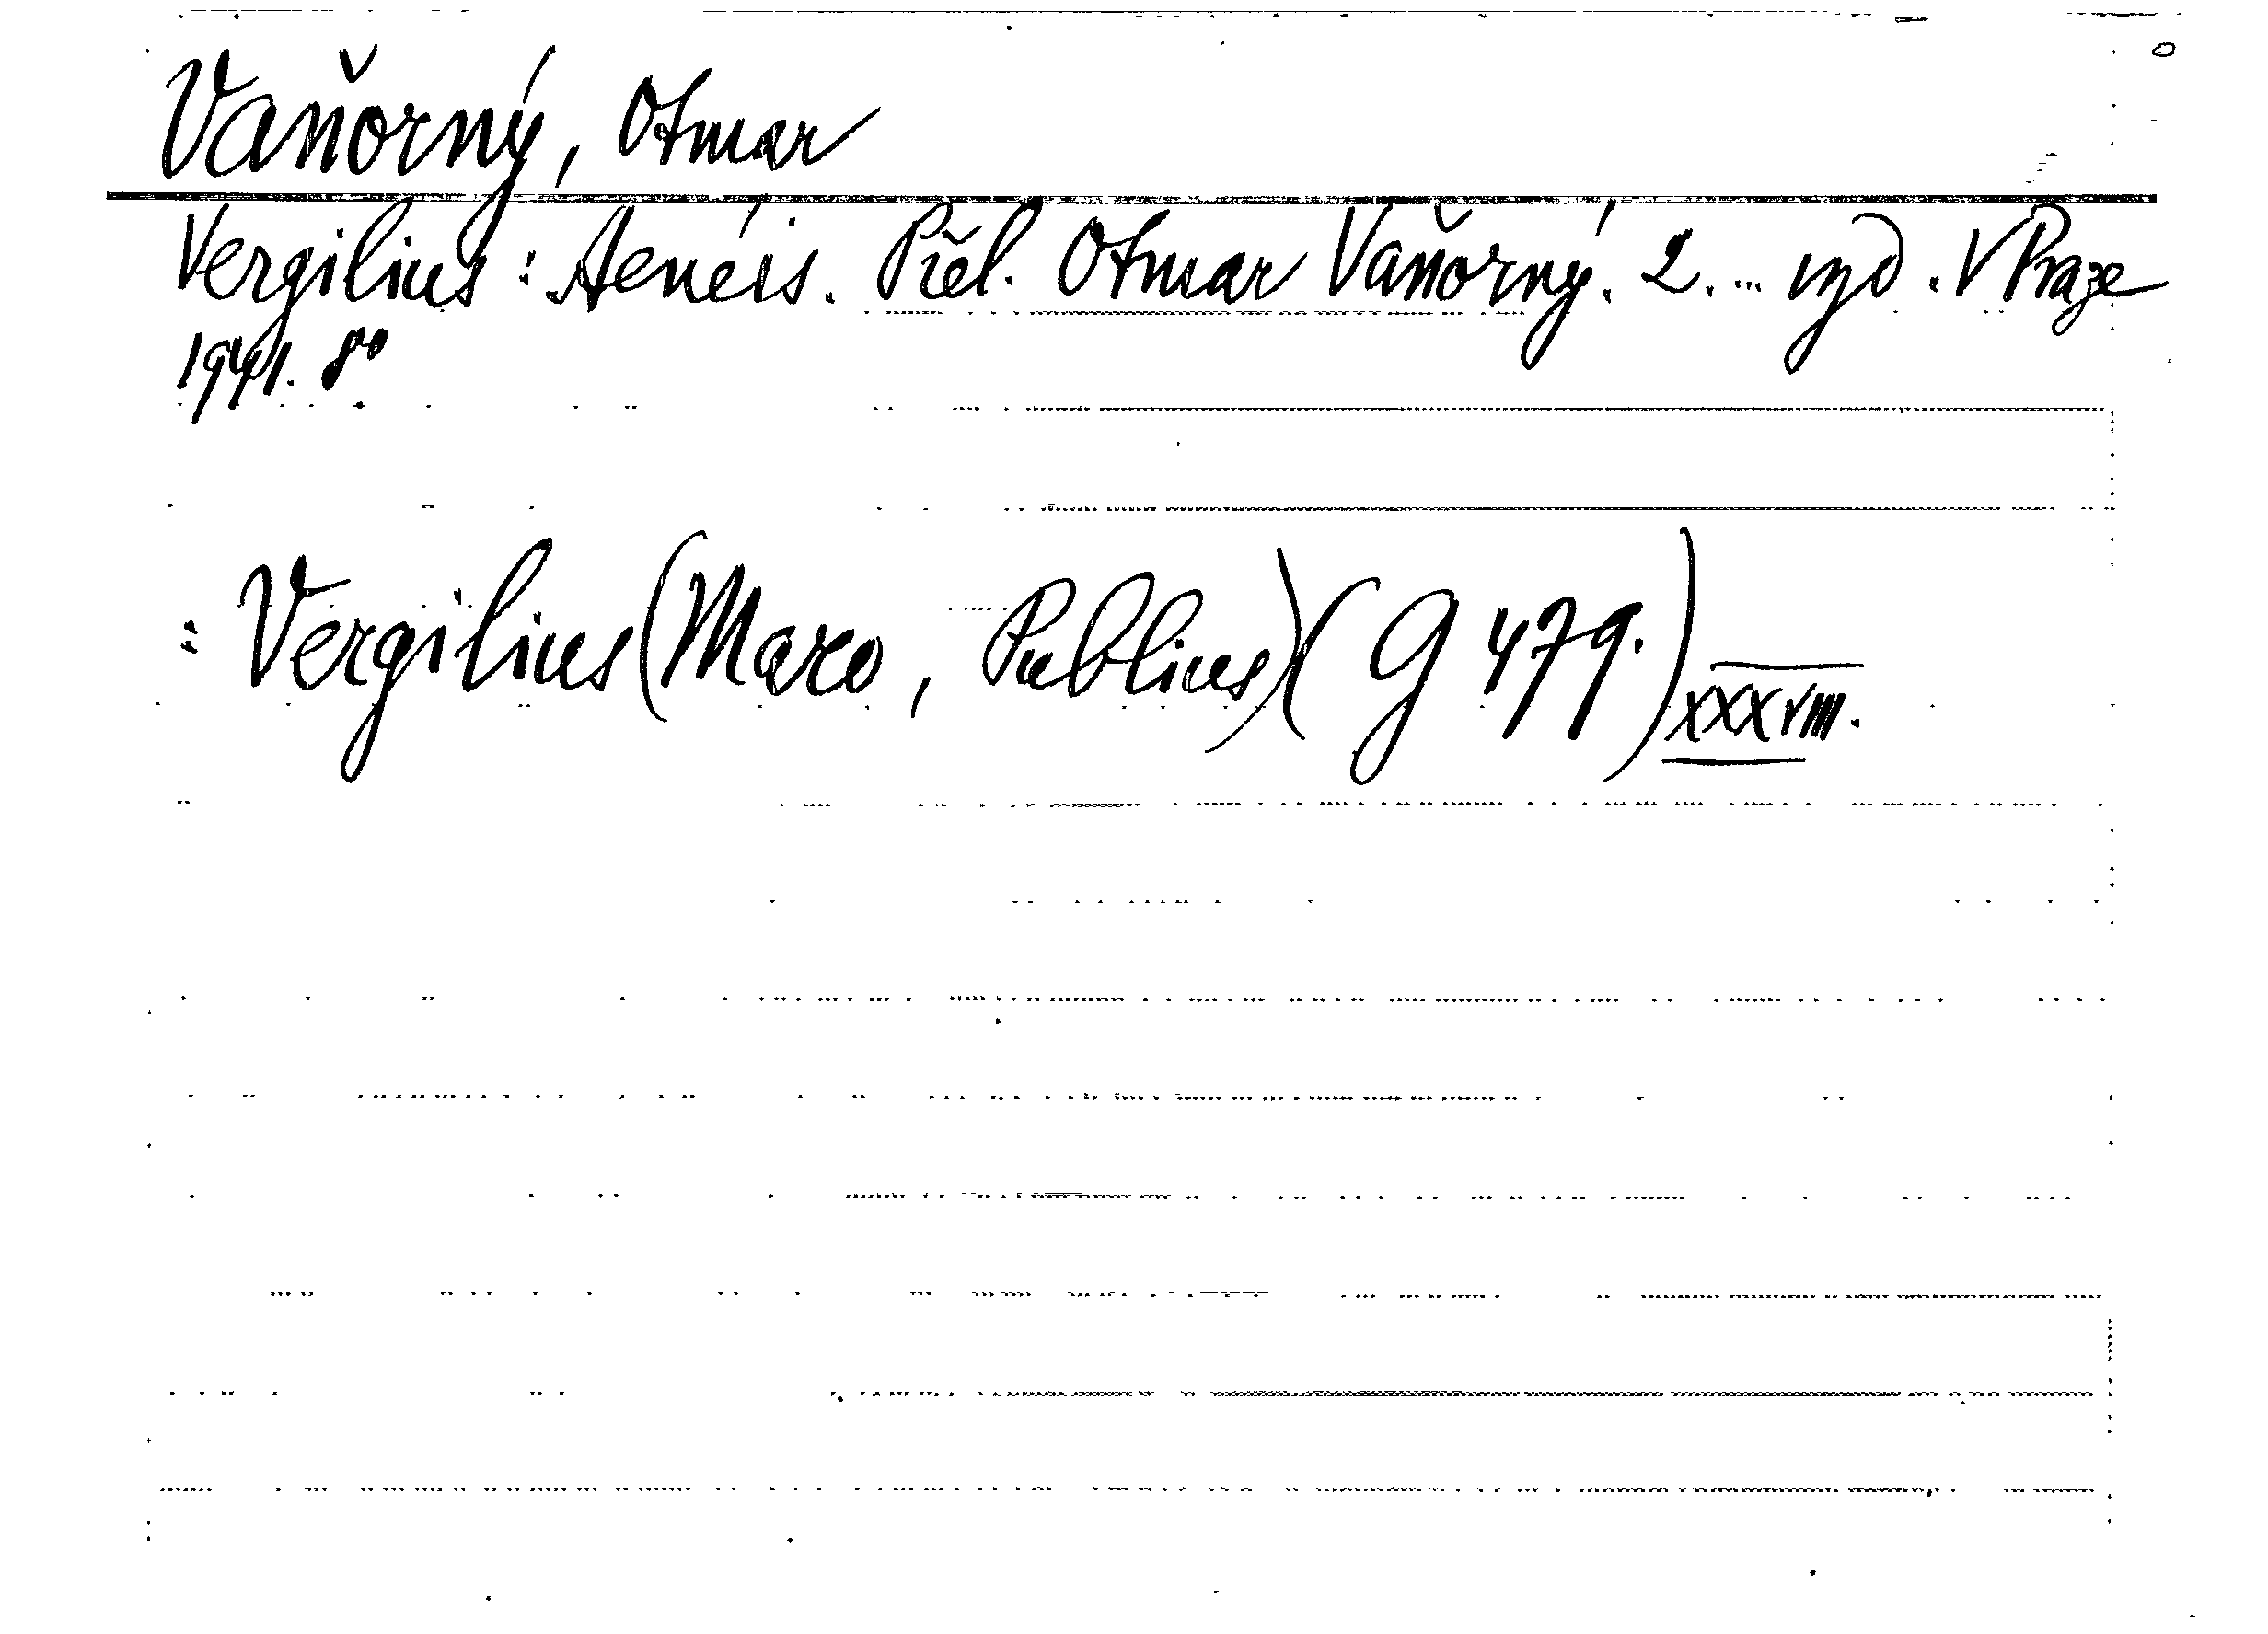 Vaňorný, Otmar
Vergilius: Aenéis. Přel. Otmar Vaňorný. 2. ... vyd. V Praze
1941. 8°
: Vergilius (Maro, Publius) (G 479.) XXXVIII.